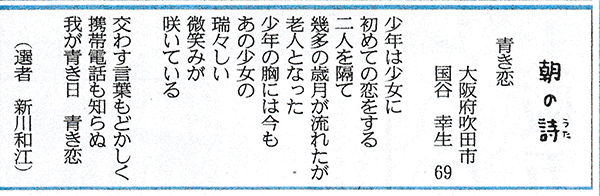 朝の詩
うた
青き恋
大阪府吹田市
国谷 幸生 69
少年は少女に
初めての恋をする
二人を隔て
幾多の歳月が流れたが
老人となった
少年の胸には今も
あの少女の
瑞々しい
微笑みが
咲いている
交わす言葉もどかしく
携帯電話も知らぬ
我が青き日 青き恋
(選者 新川和江)